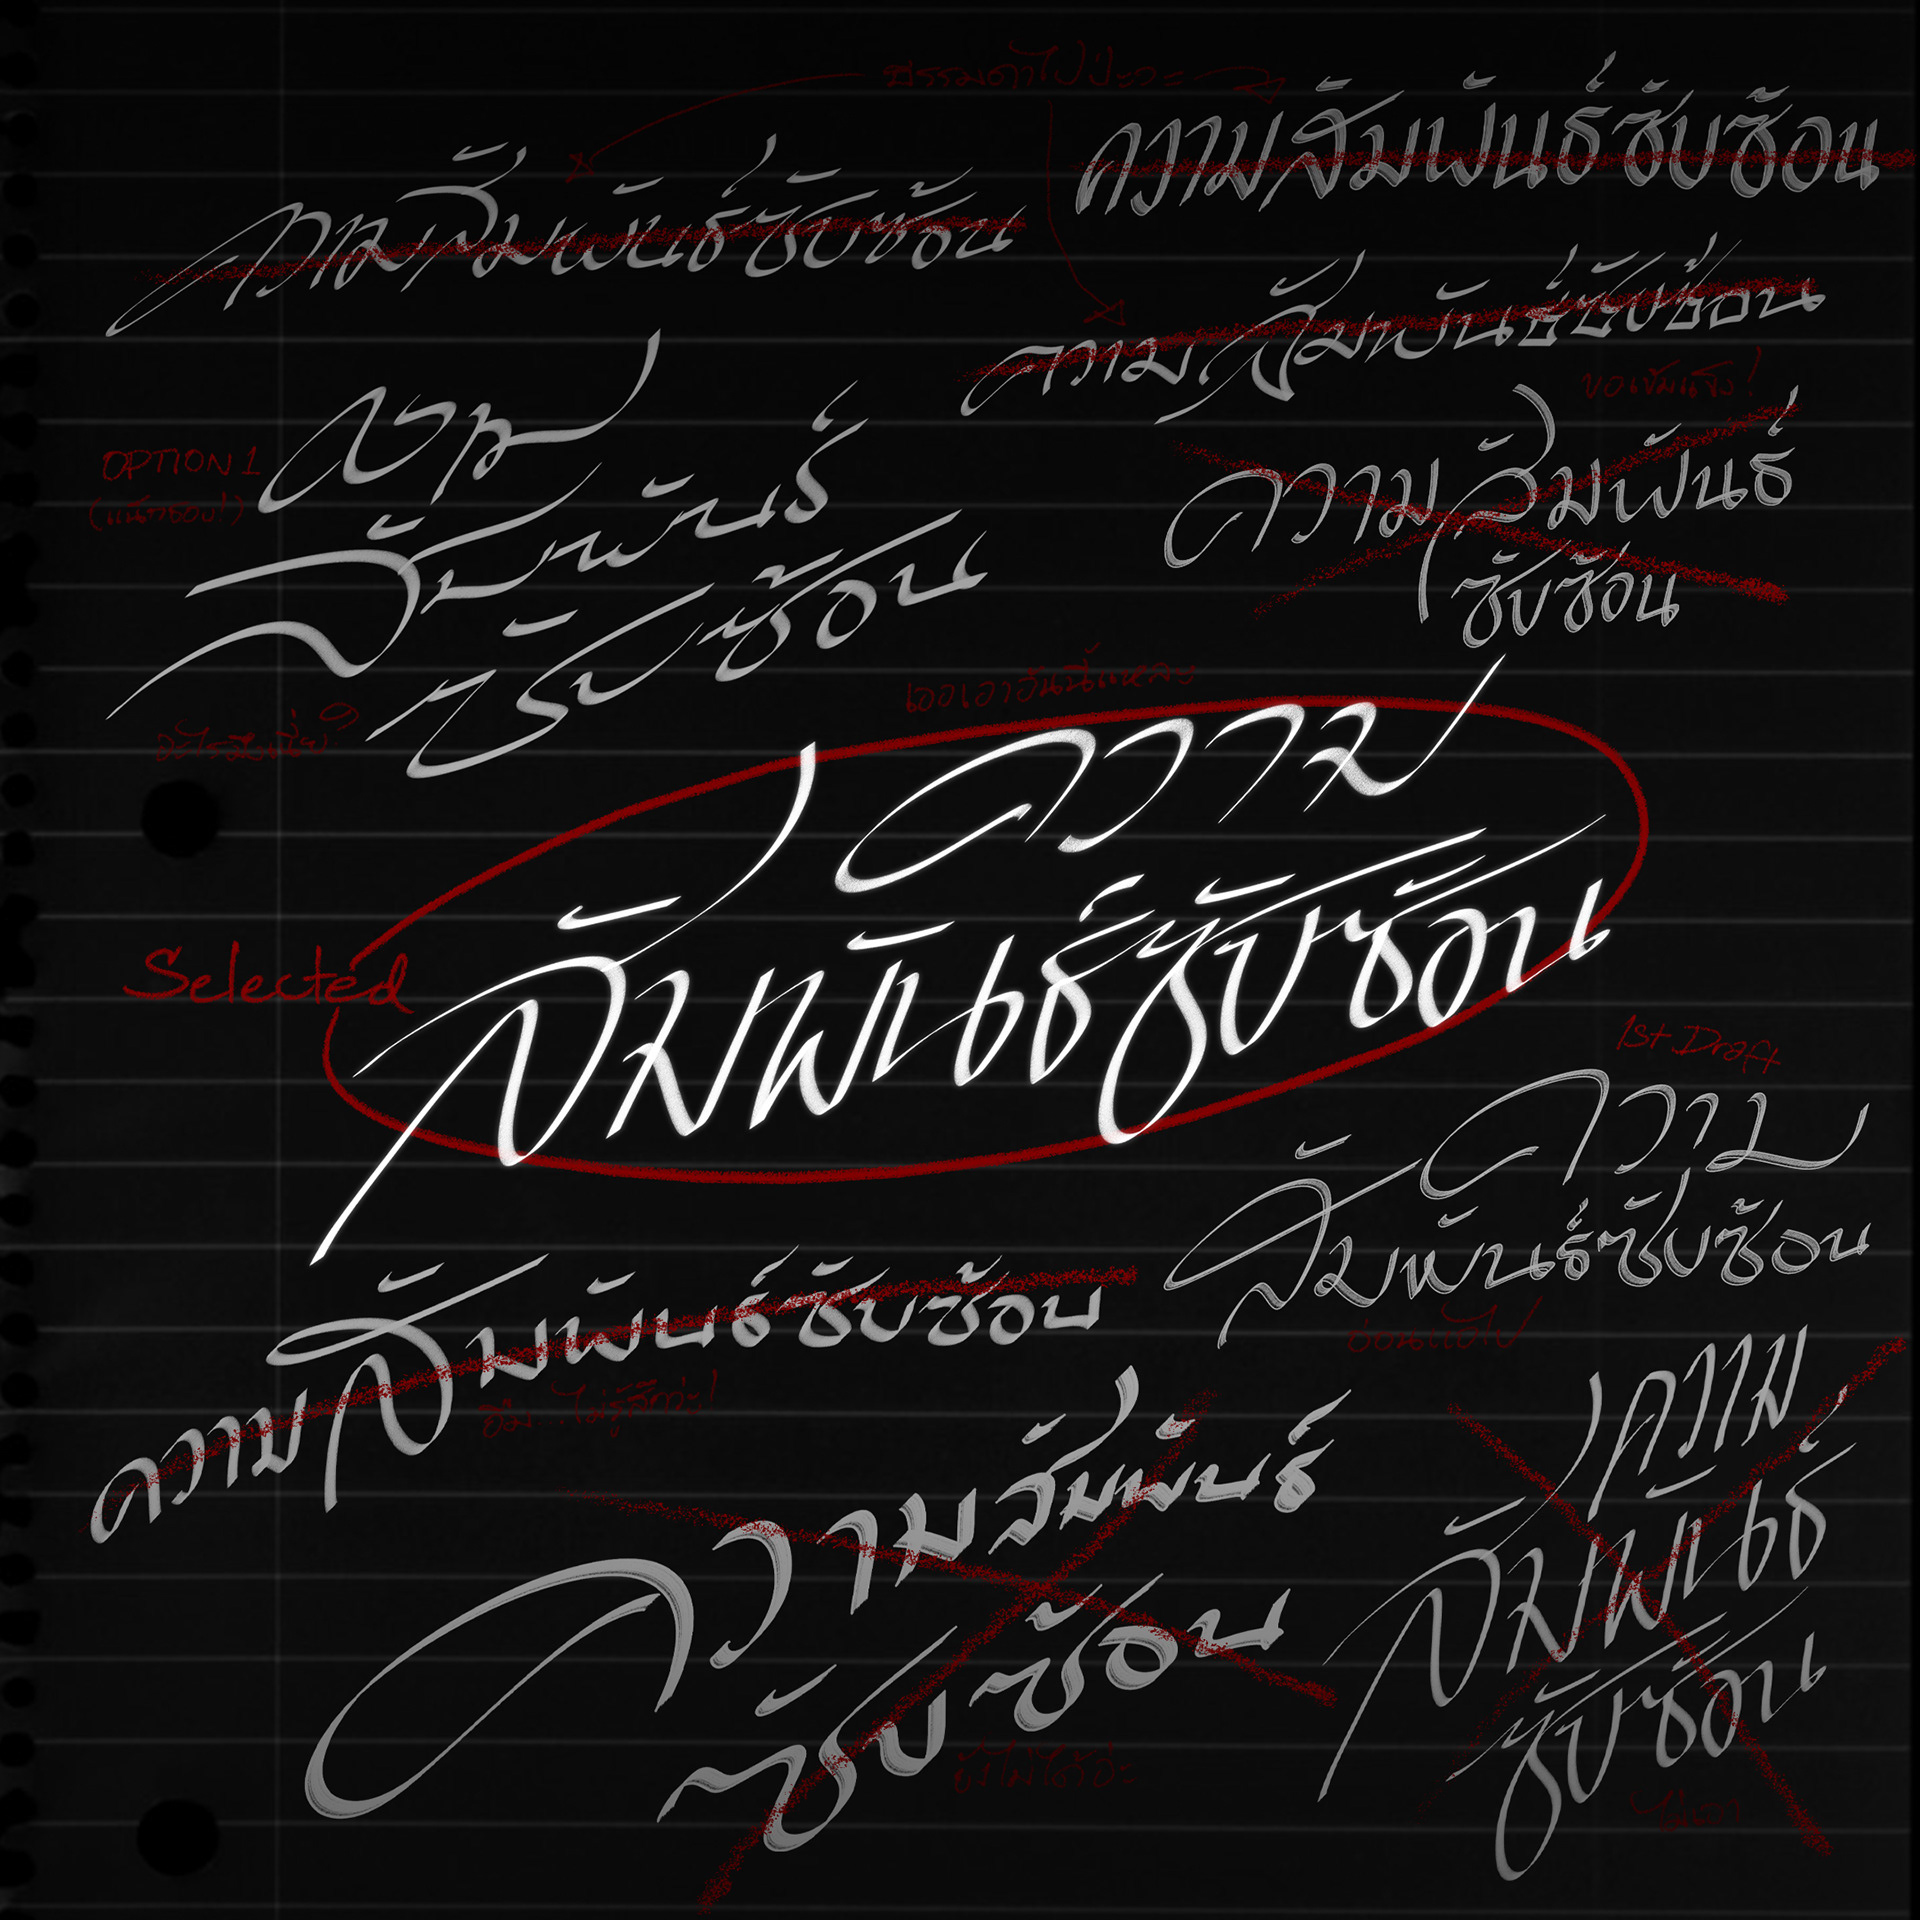 ธรรมดาไปป่ะวะ
ความสัมพันธ์ซับซ้อน
ความสัมพันธ์ซับซ้อน
ความสัมพันธ์ซับซ้อน
ขอเข้มแข็ง!
OPTION 1
ความ
สัมพันธ์
ซับซ้อน
ความสัมพันธ์
ซับซ้อน
เออเอาอันนี้แหละ
Selected
ความ
สัมพันธ์ซับซ้อน
1st Draft
ความ
สัมพันธ์ซับซ้อน
อ่อนแอไป
ความสัมพันธ์ซับซ้อน
อืม...ไม่รู้สึกว่ะ!
ความสัมพันธ์
ซับซ้อน
ยังไม่ได้อ่ะ
ความ
สัมพันธ์
ซับซ้อน
ไม่เอา